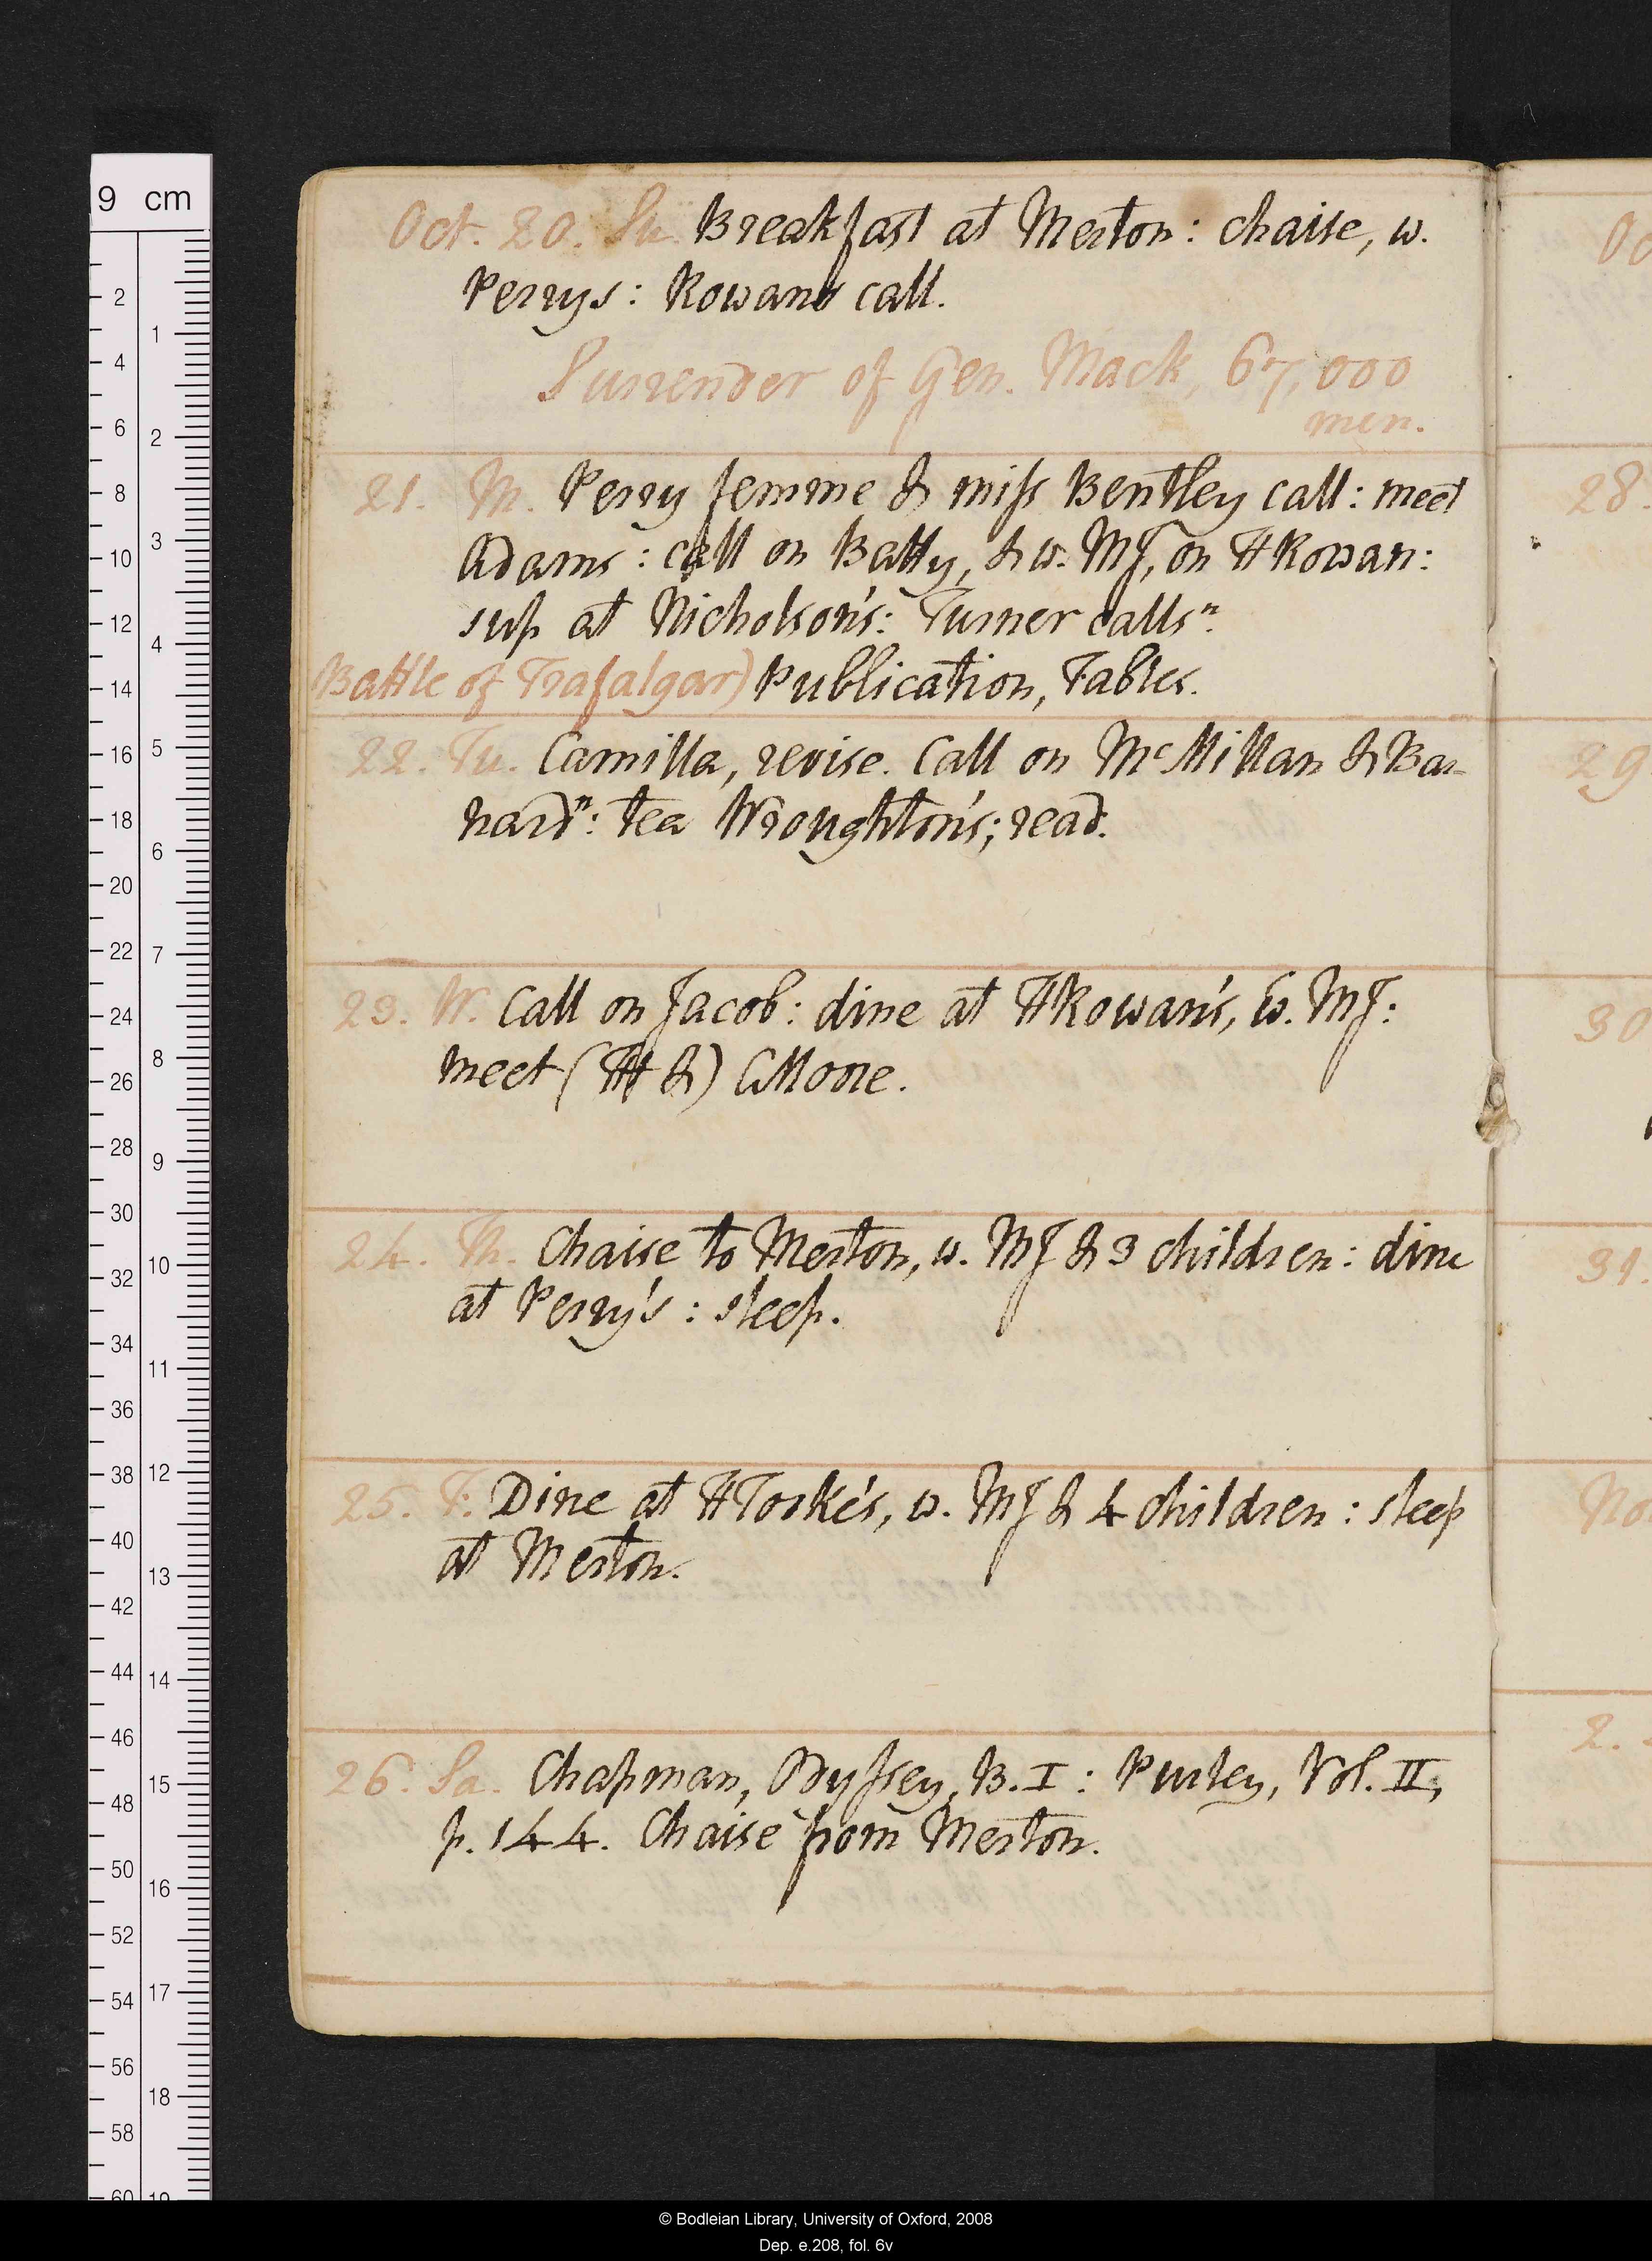 Oct. 20. Su. Breakfast at Merton: chaise, w.
Perrys: Rowans call.
Surrender of Gen. Mack, 67,000
men.
21. M. Perry femme & miss Bentley call: meet
Adams: call on Batty, & w. MJ, on HRowan:
sup at Nicholson's: Turner callsⁿ.
Battle of Trafalgar) Publication, Fables.
22. Tu. Camilla, revise. Call on McMillan & Bar-
nardⁿ: tea Wroughton's; read.
23. W. Call on Jacob: dine at HRowan's, w. MJ:
meet (TH &) CMoore.
24. Th. Chaise to Merton, w. MJ & 3 children: dine
at Perry's: sleep.
25. F. Dine at HTooke's, w. MJ & 4 children: sleep
at Merton.
26. Sa. Chapman, Odyssey, B. I: Purley, Vol. II,
p. 144. Chaise from Merton.
9 cm
2
4
6
8
10
12
14
16
18
20
22
24
26
28
30
32
34
36
38
40
42
44
46
48
50
52
54
56
58
60
1
2
3
4
5
6
7
8
9
10
11
12
13
14
15
16
17
18
28.
29
30
31.
2.
© Bodleian Library, University of Oxford, 2008
Dep. e.208, fol. 6v